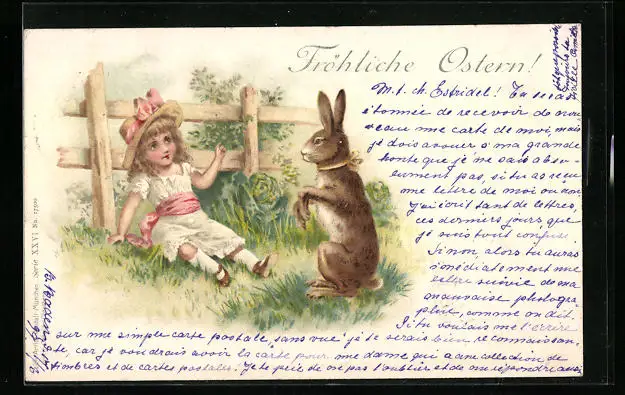 Fröhliche Ostern!
M. t. ch. Estridel! Tu seras
étonnée de recevoir de nou-
veau une carte de moi, mais
je dois avouer à ma grande
honte que je ne sais abso-
lument pas, si tu as reçu
une lettre de moi ou non
J'ai écrit tant de lettres,
ces derniers jours que
je suis tout confuse.
Si non, alors tu auras
immédiatement une
lettre suivie de ma
mauvaise photogra-
phie, comme on dit.
Si tu voulais me l'écrire
sur une simple carte postale, sans vue! je te serais bien reconnaissan-
te, car je voudrais avoir la carte pour une dame qui a une collection de
timbres et de cartes postales. Je te prie de ne pas l'oublier et de me répondre aussi
München Serie XXVI No. 17500